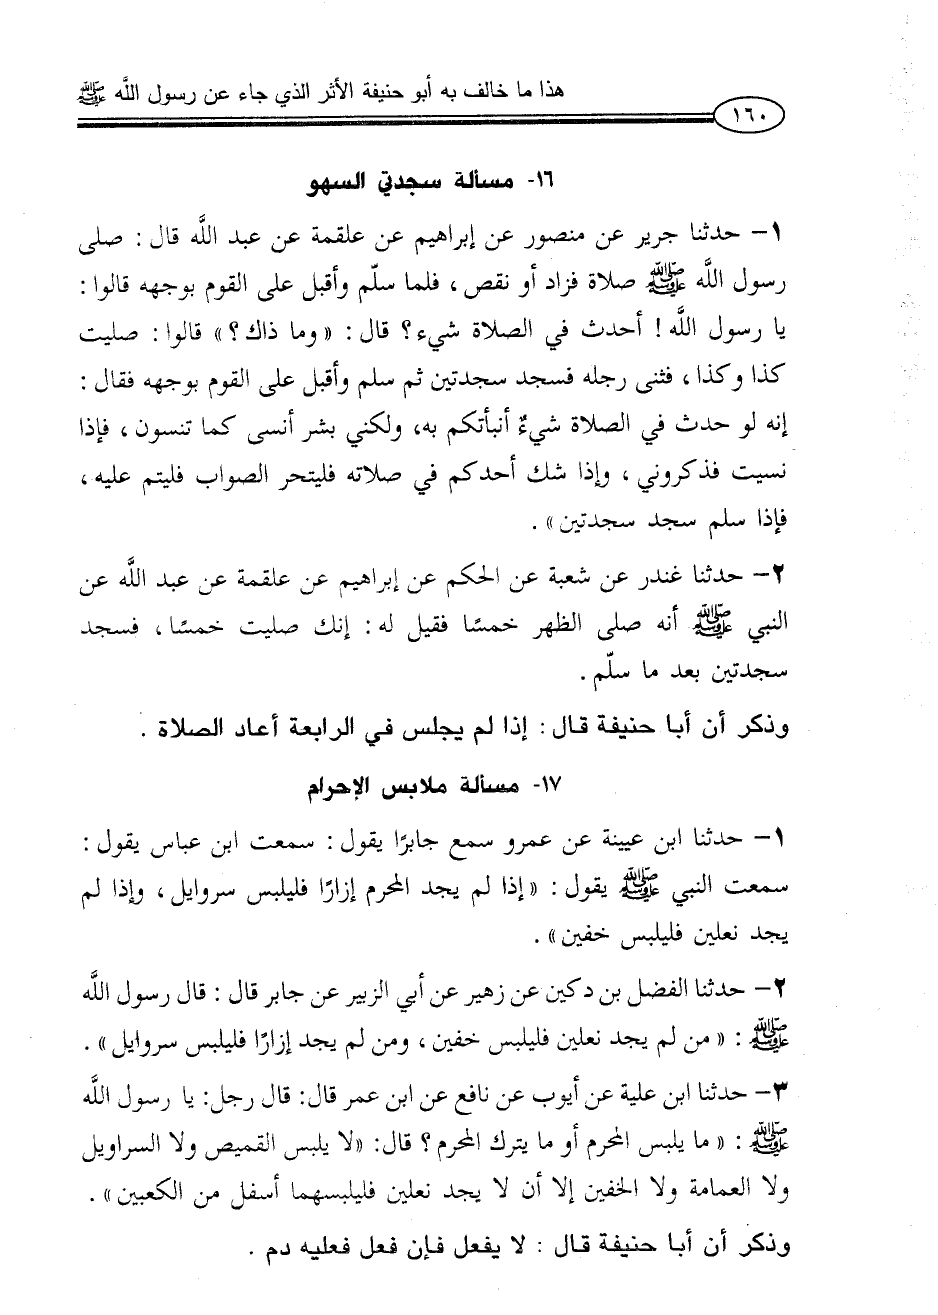 هذا ما خالف به أبو حنيفة الأثر الذي جاء عن رسول الله ﷺ
١٦٠
١٦- مسألة سجدتي السهو
١- حدثنا جرير عن منصور عن إبراهيم عن علقمة عن عبد الله قال : صلى
رسول الله ﷺ صلاة فزاد أو نقص ، فلما سلّم وأقبل على القوم بوجهه قالوا :
يا رسول الله ! أحدث في الصلاة شيء؟ قال : « وما ذاك ؟ » قالوا : صليت
كذا وكذا ، فثنى رجله فسجد سجدتين ثم سلم وأقبل على القوم بوجهه فقال :
إنه لو حدث في الصلاة شيءٌ أنبأتكم به، ولكني بشر أنسى كما تنسون ، فإذا
نسيت فذكروني ، وإذا شك أحدكم في صلاته فليتحر الصواب فليتم عليه ،
فإذا سلم سجد سجدتين» .
٢- حدثنا غندر عن شعبة عن الحكم عن إبراهيم عن علقمة عن عبد الله عن
النبي ﷺ أنه صلى الظهر خمسًا فقيل له : إنك صليت خمسًا ، فسجد
سجدتين بعد ما سلّم .
وذكر أن أبا حنيفة قال : إذا لم يجلس في الرابعة أعاد الصلاة .
١٧- مسألة ملابس الإحرام
١- حدثنا ابن عيينة عن عمرو سمع جابرًا يقول : سمعت ابن عباس يقول :
سمعت النبي ﷺ يقول : «إذا لم يجد المحرم إزارًا فليلبس سروايل ، وإذا لم
يجد نعلين فليلبس خفين» .
٢- حدثنا الفضل بن دكين عن زهير عن أبي الزبير عن جابر قال : قال رسول الله
ﷺ : « من لم يجد نعلين فليلبس خفين ، ومن لم يجد إزارًا فليلبس سروايل» .
٣- حدثنا ابن علية عن أيوب عن نافع عن ابن عمر قال: قال رجل: يا رسول الله
ﷺ : « ما يلبس المحرم أو ما يترك المحرم ؟ قال: «لا يلبس القميص ولا السراويل
ولا العمامة ولا الخفين إلا أن لا يجد نعلين فليلبسهما أسفل من الكعبين» .
وذكر أن أبا حنيفة قال : لا يفعل فإن فعل فعليه دم .